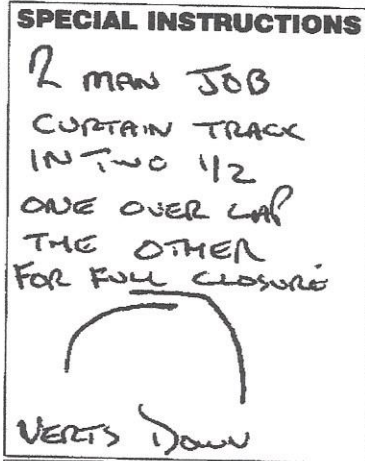 SPECIAL INSTRUCTIONS
2 MAN JOB
CURTAIN TRACK
IN TWO 1/2
ONE OVER LAP
THE OTHER
FOR FULL CLOSURE
VERTS DOWN